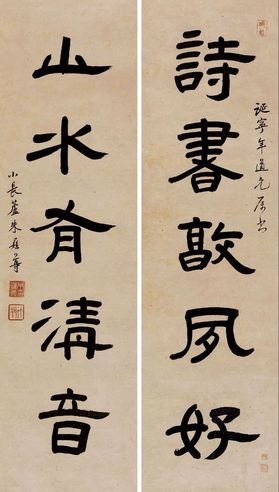 誕寧年道兄屬書
詩書敦夙好
山水有清音
小長蘆朱彝尊